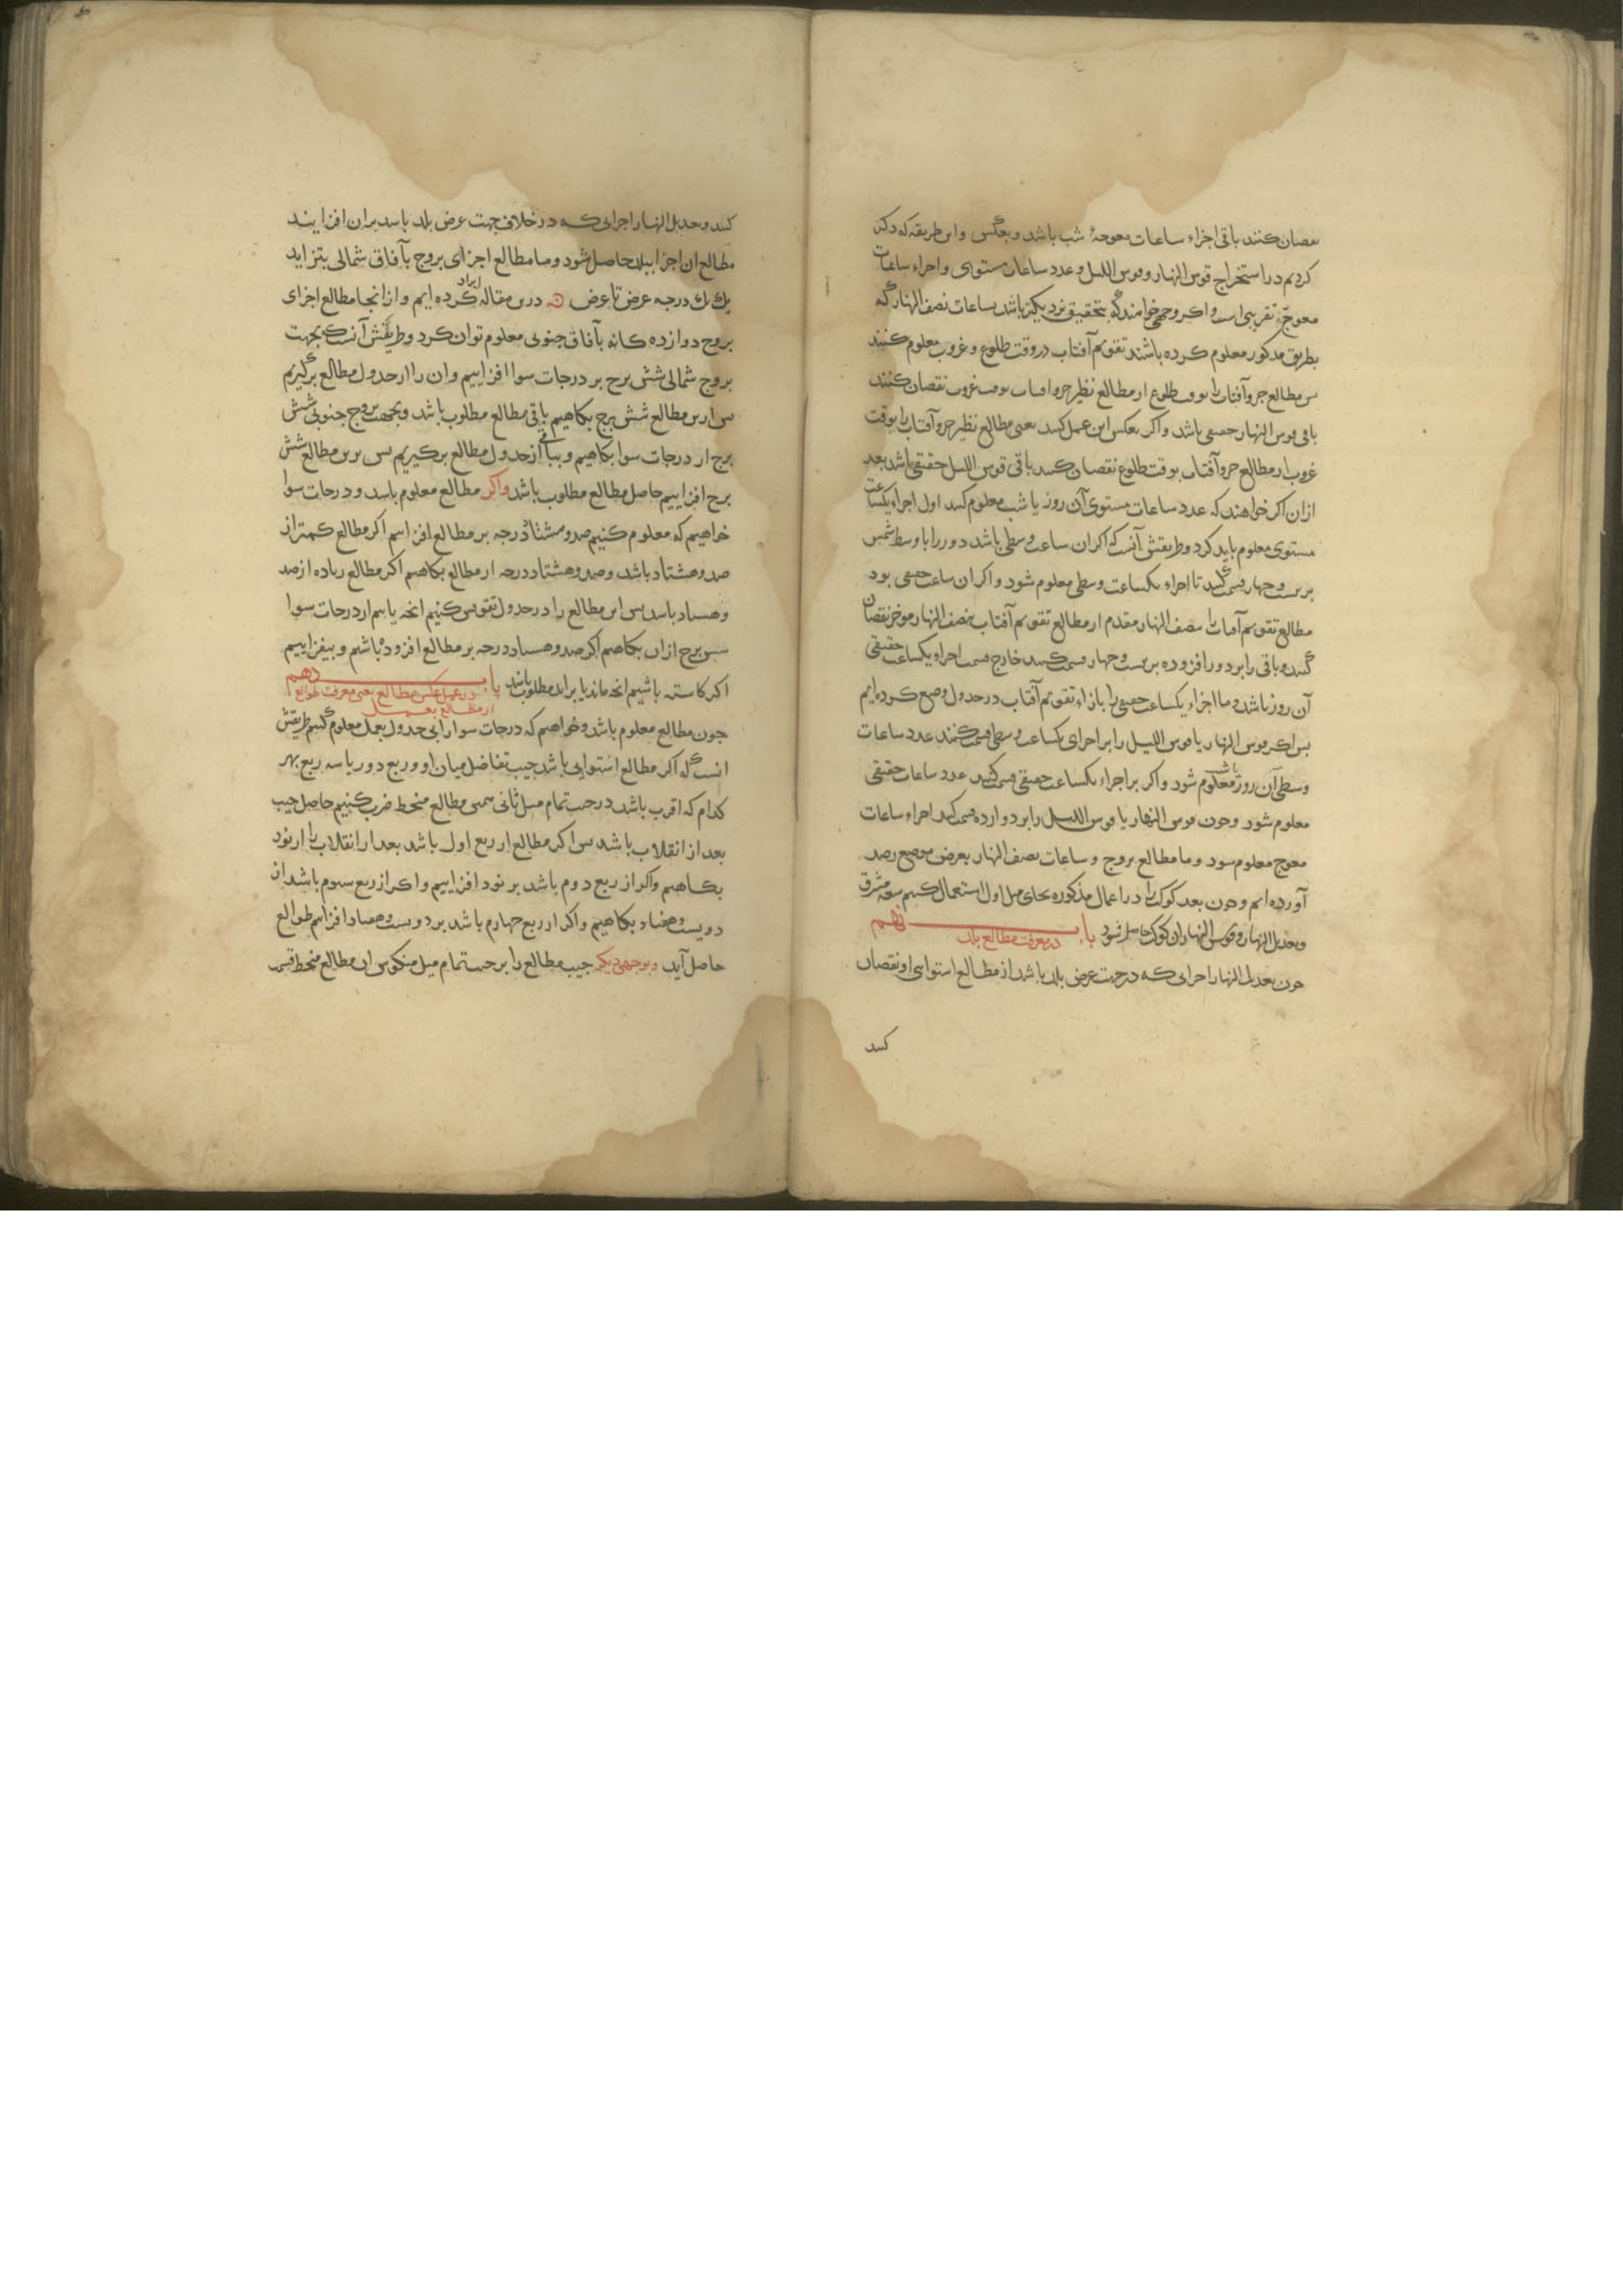 نقصان کنند باقی اجزاء ساعات معوجهٔ شب باشد و بعکس و این طریقه که ذکر
کردیم در استخراج قوس النهار و قوس اللیل و عدد ساعات مستوی و اجزاء ساعات
معوجّ، تقریبی است و اکر وجهی خواهند که بتحقیق نزدیکتر باشد بساعات نصف النهار که
بطریق مذکور معلوم کرده باشند تقویم آفتاب در وقت طلوع و غروب معلوم کنند
پس مطالع جزو آفتاب را بوقت طلوع از مطالع نظیر جزو آفتاب بوقت غروب نقصان کنند
باقی قوس النهار حقیقی باشد و اکر بعکس این عمل کنند یعنی مطالع نظیر جزو آفتاب را بوقت
غروب از مطالع جزو آفتاب بوقت طلوع نقصان کنند باقی قوس اللیل حقیقی باشد بعد
ازان اکر خواهند که عدد ساعات مستوی آن روز یا شب معلوم کنند اول اجزاء یکساعت
مستوی معلوم باید کرد و طریقش آنست که اکر ان ساعت وسطی باشد دور را با وسط شمس
بر بیست و چهار قسمت کنند تا اجزاء یکساعت وسطی معلوم شود و اکر ان ساعت حقیقی بود
مطالع تقویم آفتاب را بنصف النهار مقدم از مطالع تقویم آفتاب بنصف النهار موخر نقصان
کنند و باقی را بر دور افزوده بر بیست و چهار قسمت کنند خارج قسمت اجزاء یکساعت حقیقی
آن روز باشد و ما اجزاء یکساعت حقیقی را بازاء تقویم آفتاب در جدول وضع کرده ایم
پس اکر قوس النهار یا قوس اللیل را بر اجزای یکساعت وسطی قسمت کنند عدد ساعات
وسطی آن روز یا شب معلوم شود و اکر بر اجزاء یکساعت حقیقی قسمت کنند عدد ساعات حقیقی
معلوم شود و چون قوس النهار یا قوس اللیل را بر دوازده قسمت کنند اجزاء ساعات
معوج معلوم شود و ما مطالع بروج و ساعات نصف النهار بعرض موضع رصد
آورده ایم و چون بعد کوکب را در اعمال مذکوره بجای میل اول استعمال کنیم سعة مشرق
و تعدیل النهار و قوس النهار ان کوکب حاصل شود باب نهم در معرفت مطالع بلد
چون تعدیل النهار اجزایی که در جهت عرض بلد باشد از مطالع استوایی او نقصان
کنند
کنند و تعدیل النهار اجزایی که در خلاف جهت عرض بلد باشد بران افزایند
مطالع ان اجزا ببلد حاصل شود و ما مطالع اجزای بروج بآفاق شمالی بتزاید
یك یك درجه عرض تا عرض درین مقاله ایراد کرده ایم و از انجا مطالع اجزای
بروج دوازده کانه بآفاق جنوبی معلوم توان کرد و طریقش آنست که بجهت
بروج شمالی شش برج بر درجات سوا افزاییم و ان را از جدول مطالع برگیریم
پس ازین مطالع شش برج بکاهیم باقی مطالع مطلوب باشد و بجهت بروج جنوبی شش
برج از درجات سوا بکاهیم و بباقی از جدول مطالع برکیریم پس برین مطالع شش
برج افزاییم حاصل مطالع مطلوب باشد واکر مطالع معلوم باشد و درجات سوا
خواهیم که معلوم کنیم صد و هشتاد درجه بر مطالع افزاییم اکر مطالع کمتر از
صد و هشتاد باشد و صد و هشتاد درجه از مطالع بکاهیم اکر مطالع زیاده از صد
و هشتاد باشد پس این مطالع را در جدول تقویس کنیم انچه یابیم از درجات سوا
شش برج ازان بکاهیم اکر صد و هشتاد درجه بر مطالع افزوده باشیم و بیفزاییم
اکر کاسته باشیم انچه ماند یا براید مطلوب باشد باب دهم در عمل عکس مطالع یعنی معرفت طوالع
از مطالع بعمل
چون مطالع معلوم باشد و خواهیم که درجات سوا را بی جدول بعمل معلوم کنیم طریقش
انست که اکر مطالع استوایی باشد جیب تفاضل میان او و ربع دور یا سه ربع بهر
کدام که اقرب باشد در جیب تمام میل ثانی سمی مطالع منحط ضرب کنیم حاصل جیب
بعد از انقلاب باشد پس اکر مطالع از ربع اول باشد بعد از انقلاب را از نود
بکاهیم واکر از ربع دوم باشد بر نود افزاییم و اکر از ربع سیوم باشد از
دویست و هفتاد بکاهیم و اکر از ربع چهارم باشد بر دویست و هفتاد افزاییم طوالع
حاصل آید وبوجهی دیکر جیب مطالع را بر جیب تمام میل منکوس ان مطالع منحط قسمت